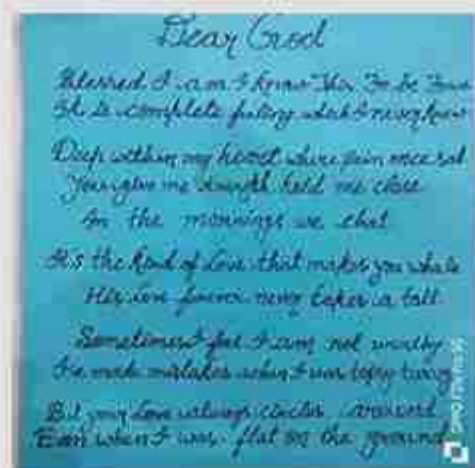 Dear God
Blessed I am I know This To be True
It is complete feeling which I never knew
Deep within my heart where pain once sat
You give me strength held me close
In the mornings we chat
It's the kind of Love that makes you whole
His love never takes a toll
Sometimes I feel I am not worthy
I've made mistakes when I was
But your Love always circles around
Even when I was flat on the ground